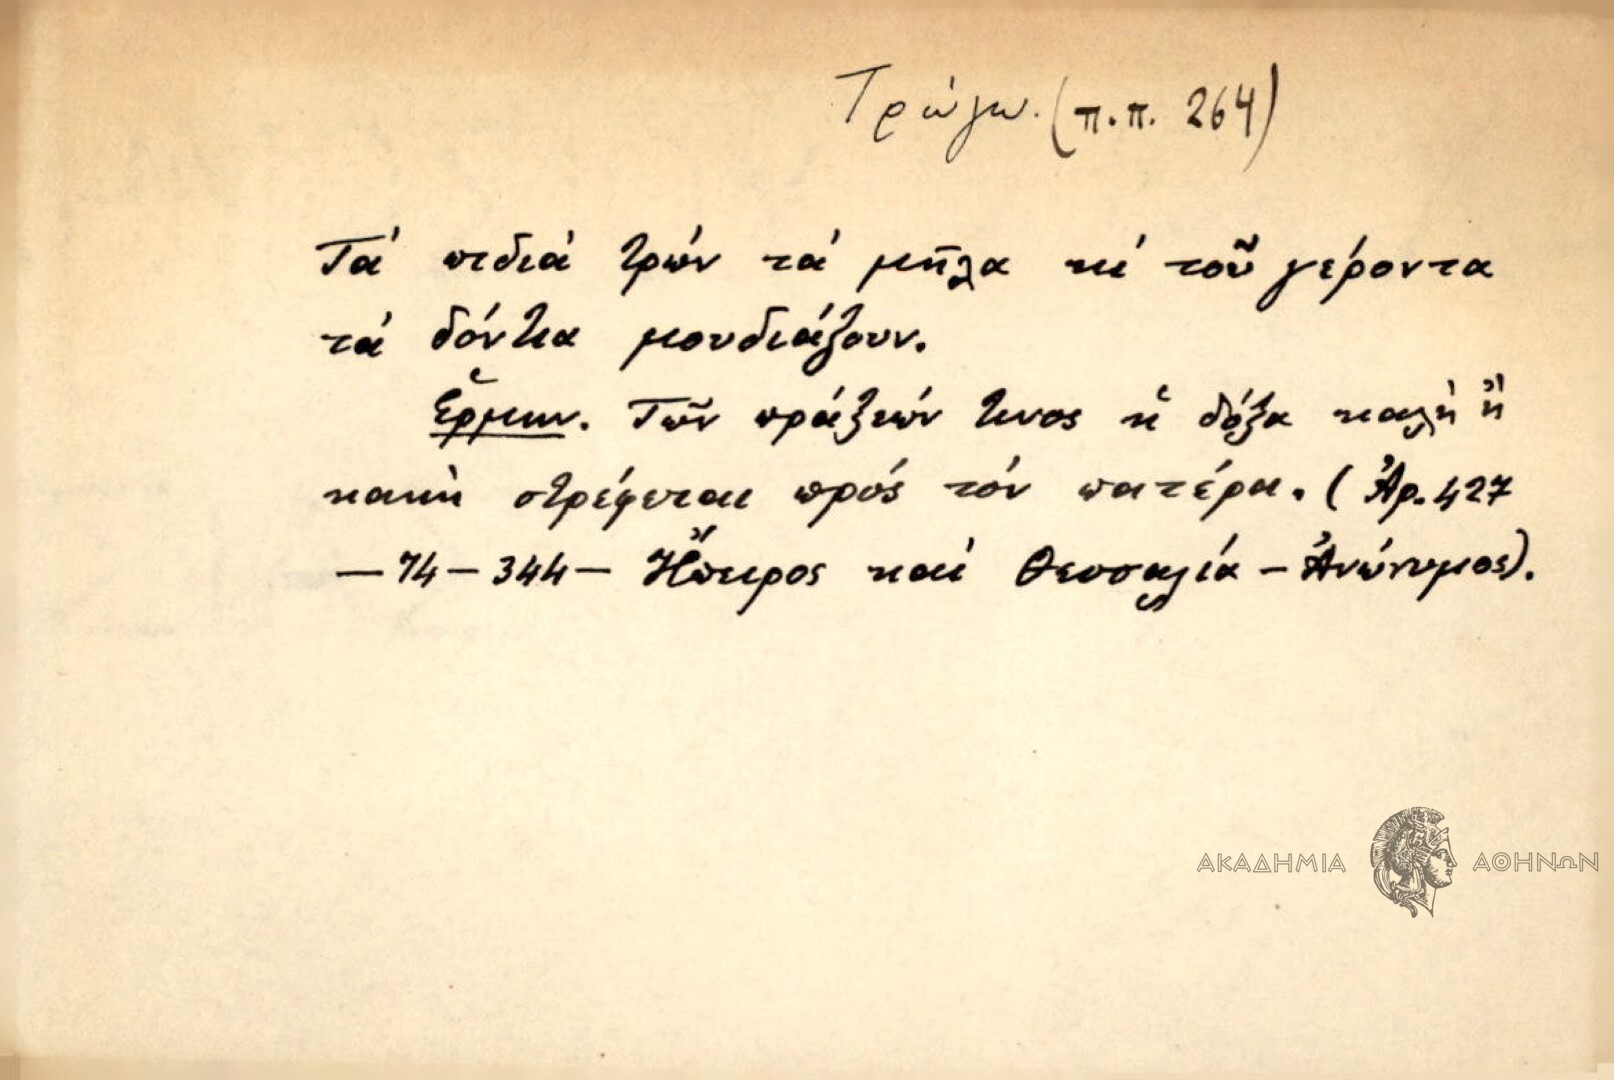 Τρώγω. (π.π. 264)
Τά πιδιά τρών τά μῆλα κί τοῦ γέροντα
τά δόντια μουδιάζουν.
Ἑρμην. Τῶν πράξεών τινος ἡ δόξα καλή ἤ
κακή στρέφεται πρός τόν πατέρα. (Ἀρ. 427
— 74 — 344 — Ἤπειρος καί Θεσσαλία — Ἀνώνυμος).
ΑΚΑΔΗΜΙΑ ΑΘΗΝΩΝ